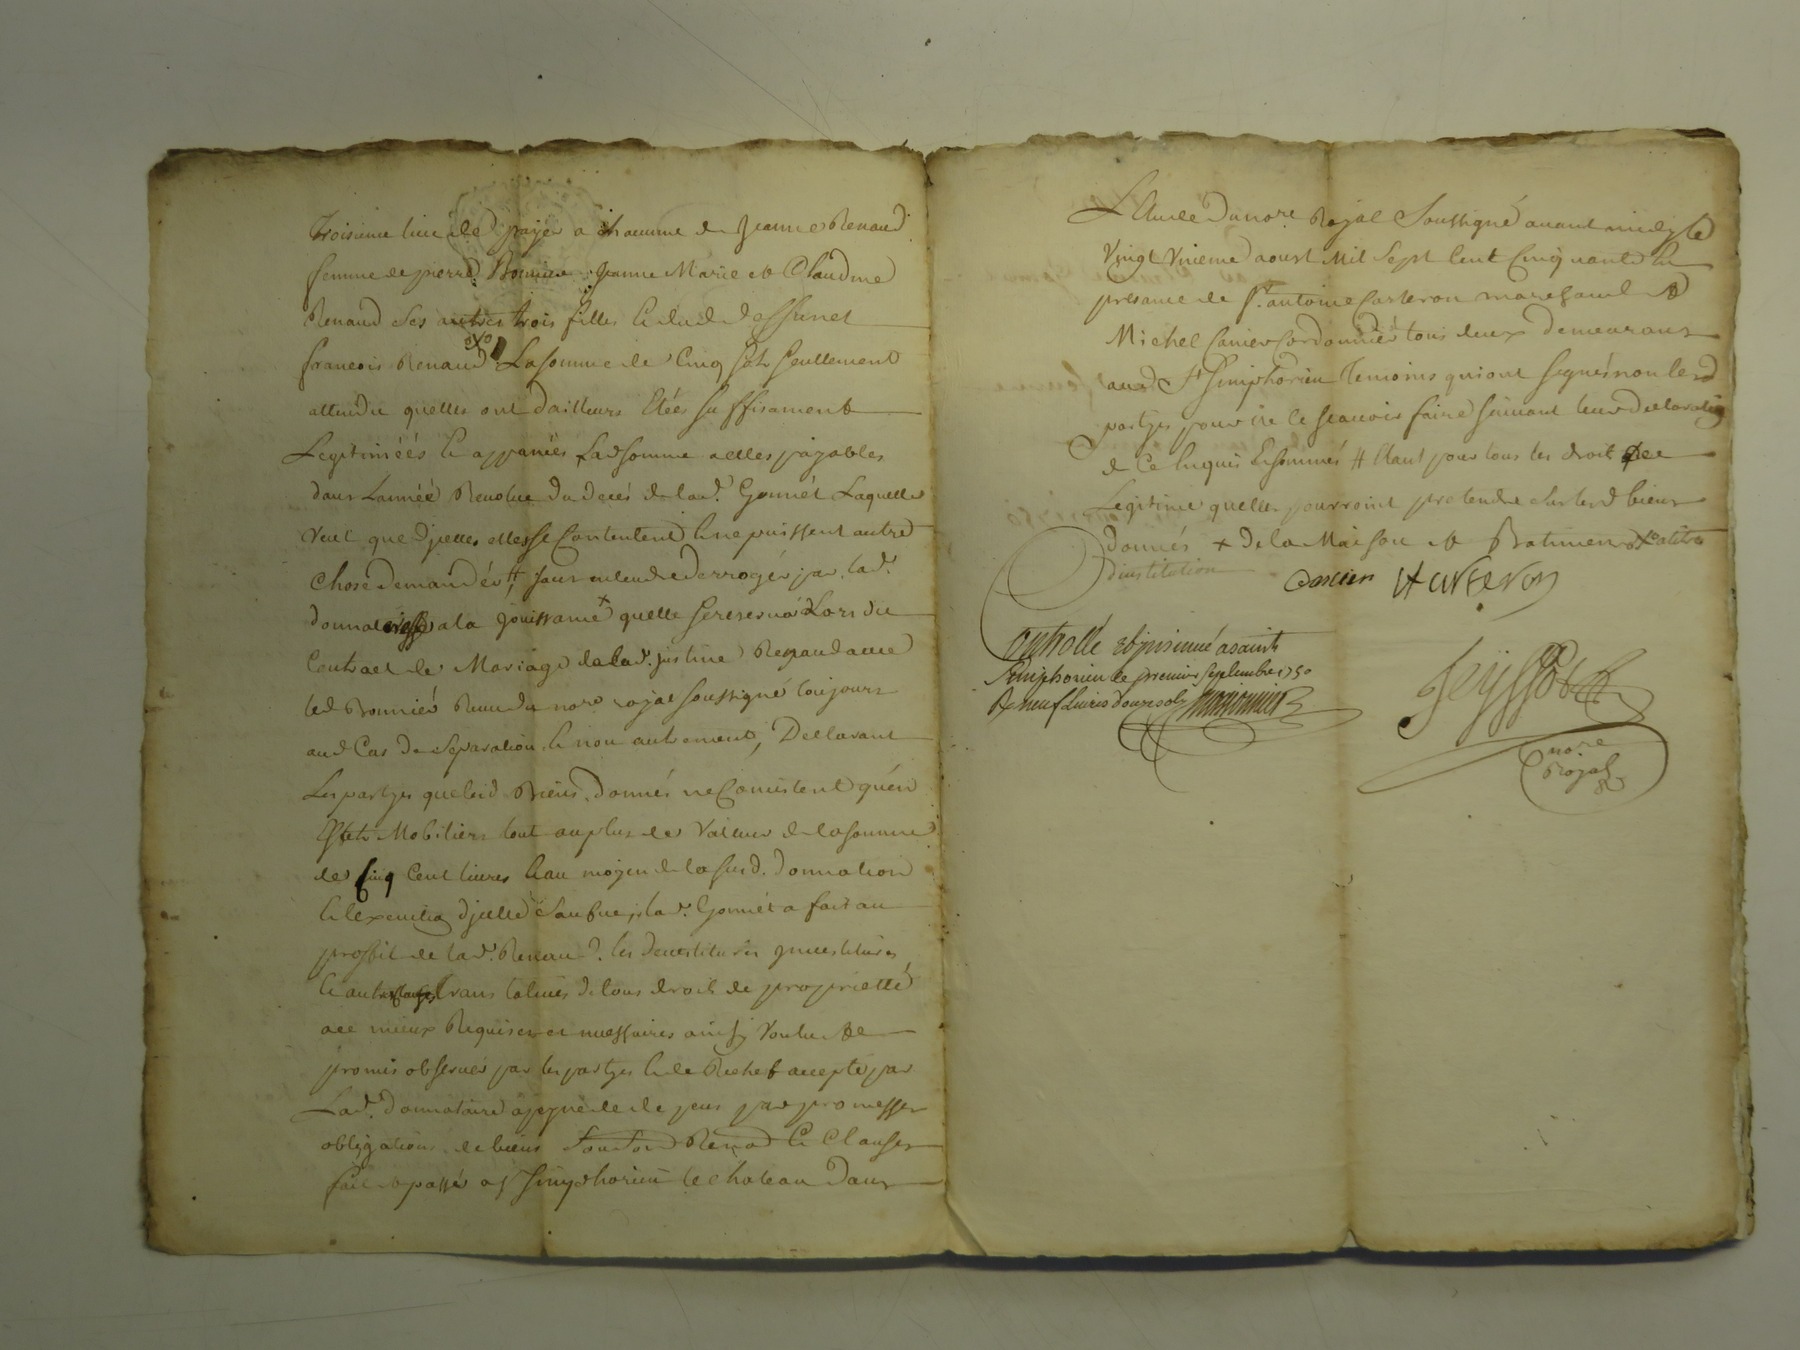 troisieme lieu de payer a chacune de Jeanne Renaud
femme de pierre Bonnier Jeanne Marie et Claudine
Renaud ses autres trois filles & dud deffunct
francois Renaud La somme de Cinq sols seullement
attendu quelles ont dailleurs Etées suffisament
Legitimées & appanées Lad somme a elles payables
dans Lannée Revolue du deces de lad. Gonnet Laquelle
veut que djcelles elles se Contentent & ne puissent autre
Chose demander # sans entendre derroger par lad.
donnatrice a la jouissance x quelle se reservá Lors du
Contract de Mariage de lad. justine Renaud avec
led Bonnier Receu du nore royal soussigné toujours
aud Cas de separation & non autrement, Declarant
Les partyes que lesd Biens donnés ne Consistent quen
Effets Mobiliers tout au plus de valeur de la somme
de Cinq Cent livres & au moyen de la susd. donnation
& lexecution djcelle Sauf lad. Gonnet a fait au
proffit de lad. Renaud. les devestitures jnvestitures
& autres Clauses translatives de tous droits de proprietté
au mieux Requises et necessaires ainsy voulu
promis observer par les partyes & accepté par
Lad. donnataire a peyne de de pens par promesses
obligations de biens Renon & Clauses
fait & passé a St Simphorien le chateau dans
LEtude du nore Royal Soussigné avant midy le
vingt unieme aoust Mil Sept Cent Cinquante En
presance de Sr antoine Carteron marchand &
Michel Cordonnier tous deux demeurants
aud St Simphorien Temoins qui ont signés non lesd
partyes pour ne le scavoir faire suivant leur declaration
de Ce Enquis & sommés # Etant pour tous les droits de
Legitime quelles pourroint pretendre sur lesd biens
donnés x de la Maison et Batiment
dinstitution
Carteron
Controllé & jnsinué a saint
Simphorien le premier septembre 1750
R neuf livres douze sols
nore
Royal